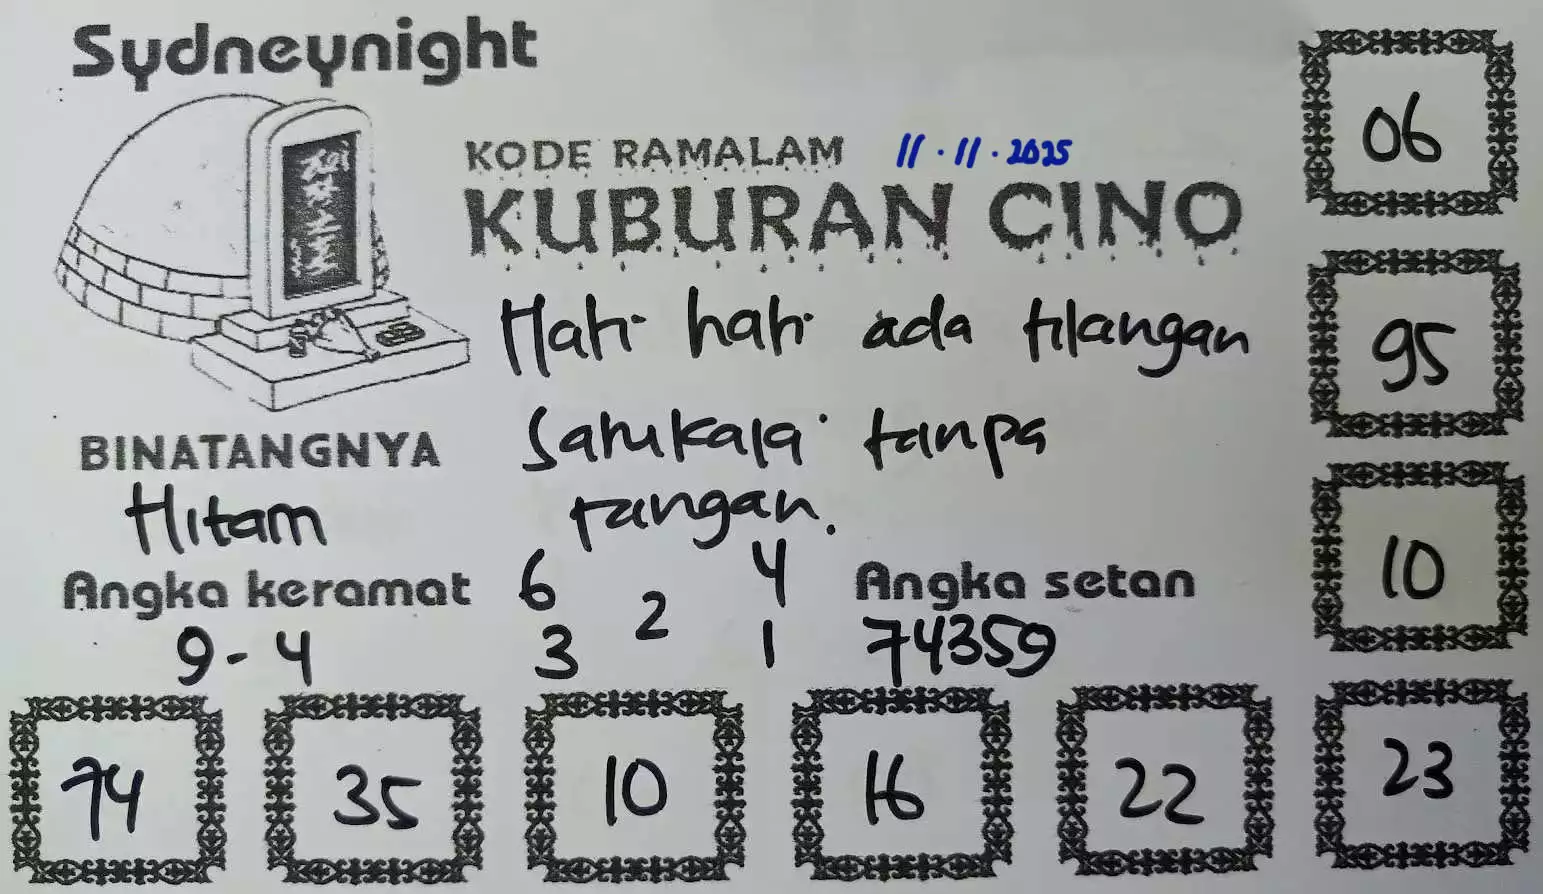 Sydneynight
KODE RAMALAM 11.11.2025
KUBURAN CINO
Hati hati ada tilangan
Satukala tanpa
tangan.
BINATANGNYA
Hitam
Angka keramat
9-4
6 4
2
3 1
Angka setan
74359
06
95
10
23
74 35 10 16 22